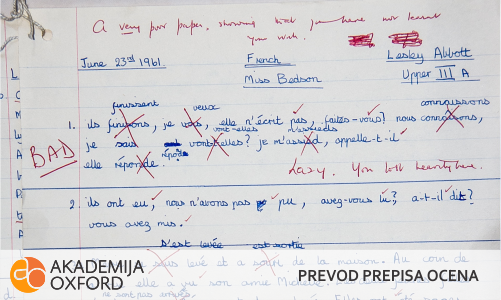 A very poor paper, showing that you have not learnt
your work.
June 23rd 1961.
French
Lesley Abbott
Miss Bedson
Upper III A
finissent
veux
connaissons
1. ils finissons, je vous, elle n'écrit pas, faites-vous? nous connaissons,
vont-elles
m'assieds
je vont-elles? je m'assied, appelle-t-il
répond
elle réponde.
BAD
Lazy. You
2. ils ont eu, nous n'avons pas pu, avez-vous lu?, a-t-il dit?
vous avez mis.
s'est levée
est sortie
levé et a de la maison. Au coin de
elle a vu son amie Michele
ne sont pas
AKADEMIJA
OXFORD
PREVOD PREPISA OCENA